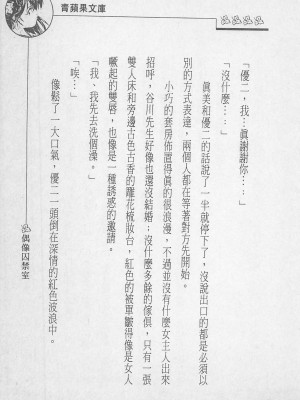 青蘋果文庫
「優二，我…真謝謝你……」
「沒什麼……」
真美和優二的話說了一半就停下了，沒說出口的都是必須以
別的方式表達，兩個人都在等著對方先開始。
小巧的套房佈置得真的很浪漫，不過並沒有什麼女主人出來
招呼，谷川先生好像也還沒結婚；沒什麼多餘的傢俱，只有一張
雙人床和旁邊古色古香的雕花梳妝台，紅色的被單皺得像是女人
噘起的雙唇，也像是一種誘惑的邀請。
「我、我先去洗個澡。」
「唉…」
像鬆了一大口氣，優二一頭倒在深情的紅色波浪中。
偶像囚禁室